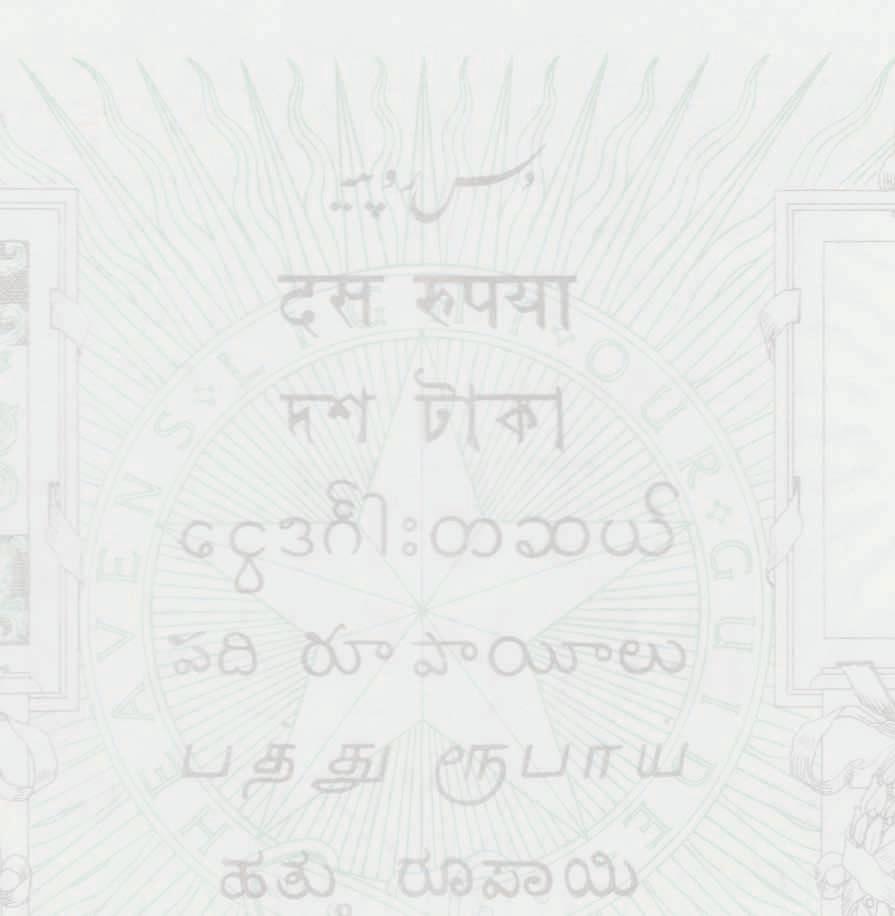 دس روپیہ
दस रुपया
দশ টাকা
ငွေဒင်္ဂါးတဆယ်
పది రూపాయీలు
பத்து ரூபாய்
ಹತು ರೂಪಾಯಿ
HEAVENS L OUR GUIDE